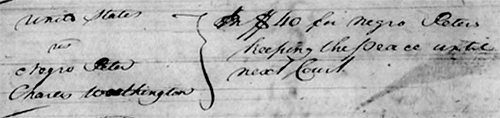 United States
vs
Negro Peter
Charles Worthington
In $40 for negro Peters
keeping the peace until
next Court